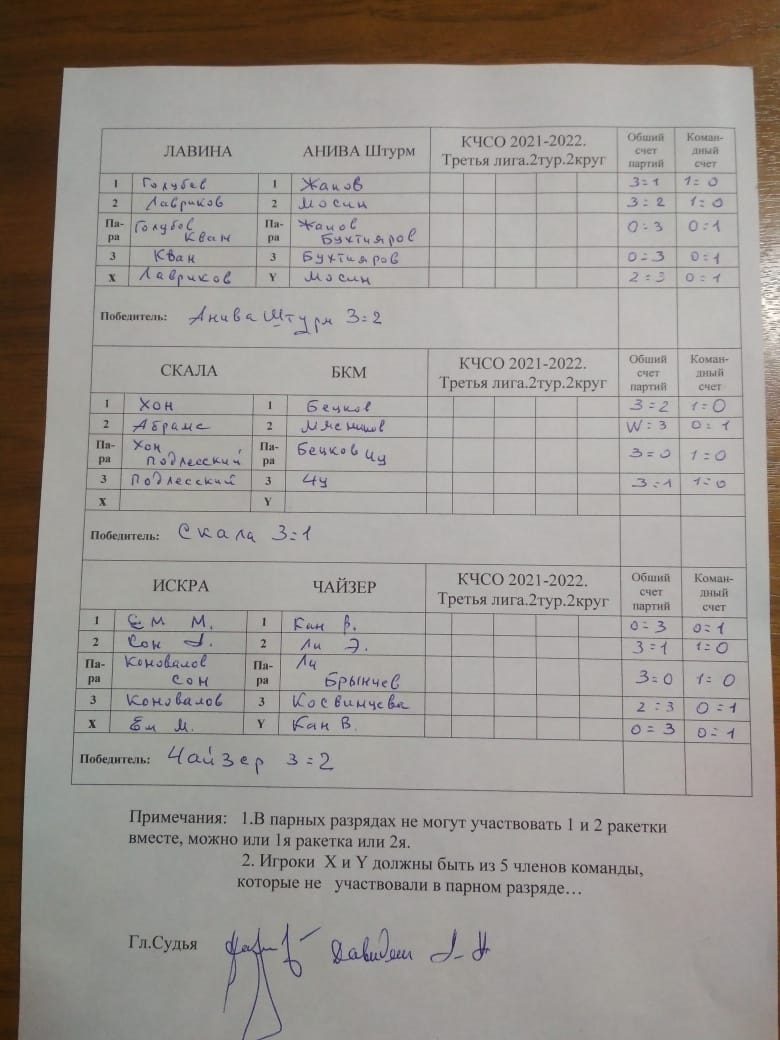 ЛАВИНА АНИВА Штурм КЧСО 2021-2022. Третья лига.2тур.2круг Общий счет партий Коман-дный счет
1 Голубев 1 Жанов 3=1 1=0
2 Лавриков 2 Мосин 3=2 1=0
Па-ра Голубев Кван Па-ра Жанов Бухтияров 0=3 0=1
3 Кван 3 Бухтияров 0=3 0=1
X Лавриков Y Мосин 2=3 0=1
Победитель: Анива Штурм 3=2
СКАЛА БКМ КЧСО 2021-2022. Третья лига.2тур.2круг Общий счет партий Коман-дный счет
1 Хон 1 Бецков 3=2 1=0
2 Абрамс 2 Мясников W=3 0=1
Па-ра Хон Подлесский Па-ра Бецков 3=0 1=0
3 Подлесский 3 3=1 1=0
X Y
Победитель: Скала 3=1
ИСКРА ЧАЙЗЕР КЧСО 2021-2022. Третья лига.2тур.2круг Общий счет партий Коман-дный счет
1 Ем М. 1 Кан В. 0=3 0=1
2 Сон 2 Ли Э. 3=1 1=0
Па-ра Коновалов Сон Па-ра Ли Брынчев 3=0 1=0
3 Коновалов 3 Косвинцева 2=3 0=1
X Ем М. Y Кан В. 0=3 0=1
Победитель: Чайзер 3=2
Примечания: 1.В парных разрядах не могут участвовать 1 и 2 ракетки
вместе, можно или 1я ракетка или 2я.
2. Игроки X и Y должны быть из 5 членов команды,
которые не участвовали в парном разряде…
Гл.Судья